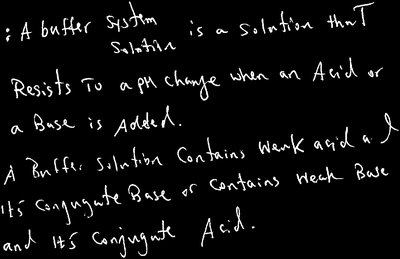 : A buffer System
Solution is a Solution that
Resists To a pH change when an Acid or
a Base is Added.
A Buffer Solution Contains Weak acid a
It's Conjugate Base or Contains Weak Base
and It's Conjugate Acid.